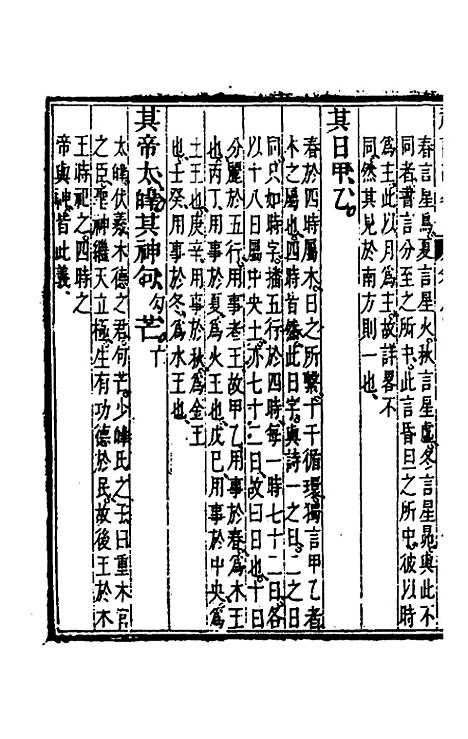 春言星鳥夏言星火秋言星虛冬言星昴與此不
同者書言分至之所中此言昏旦之所中彼以時
為主此以月為主故詳畧不
同然其見於南方則一也
其日甲乙
春於四時屬木日之所繫十干循環獨言甲乙者
木之屬也四時皆然此日字與詩一之日二之日
同只如時字播五行於四時每一時七十二日各
以十八日屬中央土亦七十二日故曰日也十日
分屬於五行用事者王故甲乙用事於春為木王
也丙丁用事於夏為火王也戊巳用事於中央為
土王也庚辛用事於秋為金王
也壬癸用事於冬為水王也
其帝太皥其神句芒
太皥伏羲木德之君句芒少皥氏之子曰重木官
之臣聖神繼天立極生有功德於民故後王於木
王時祀之四時之
帝與神皆此義